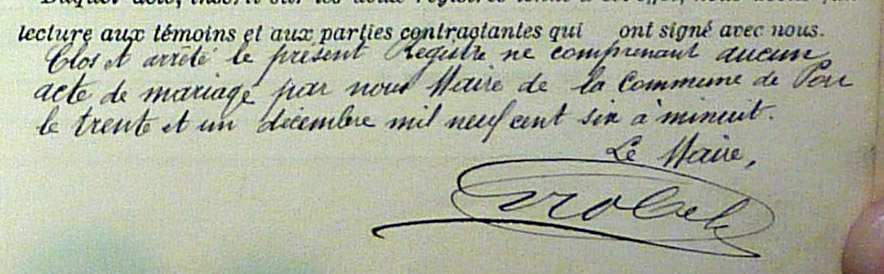 lecture aux témoins et aux parties contractantes qui ont signé avec nous.
Clos et arrêté le présent Registre ne comprenant aucun
acte de mariage par nous Maire de la Commune de
le trente et un décembre mil neuf cent six à minuit.
Le Maire,